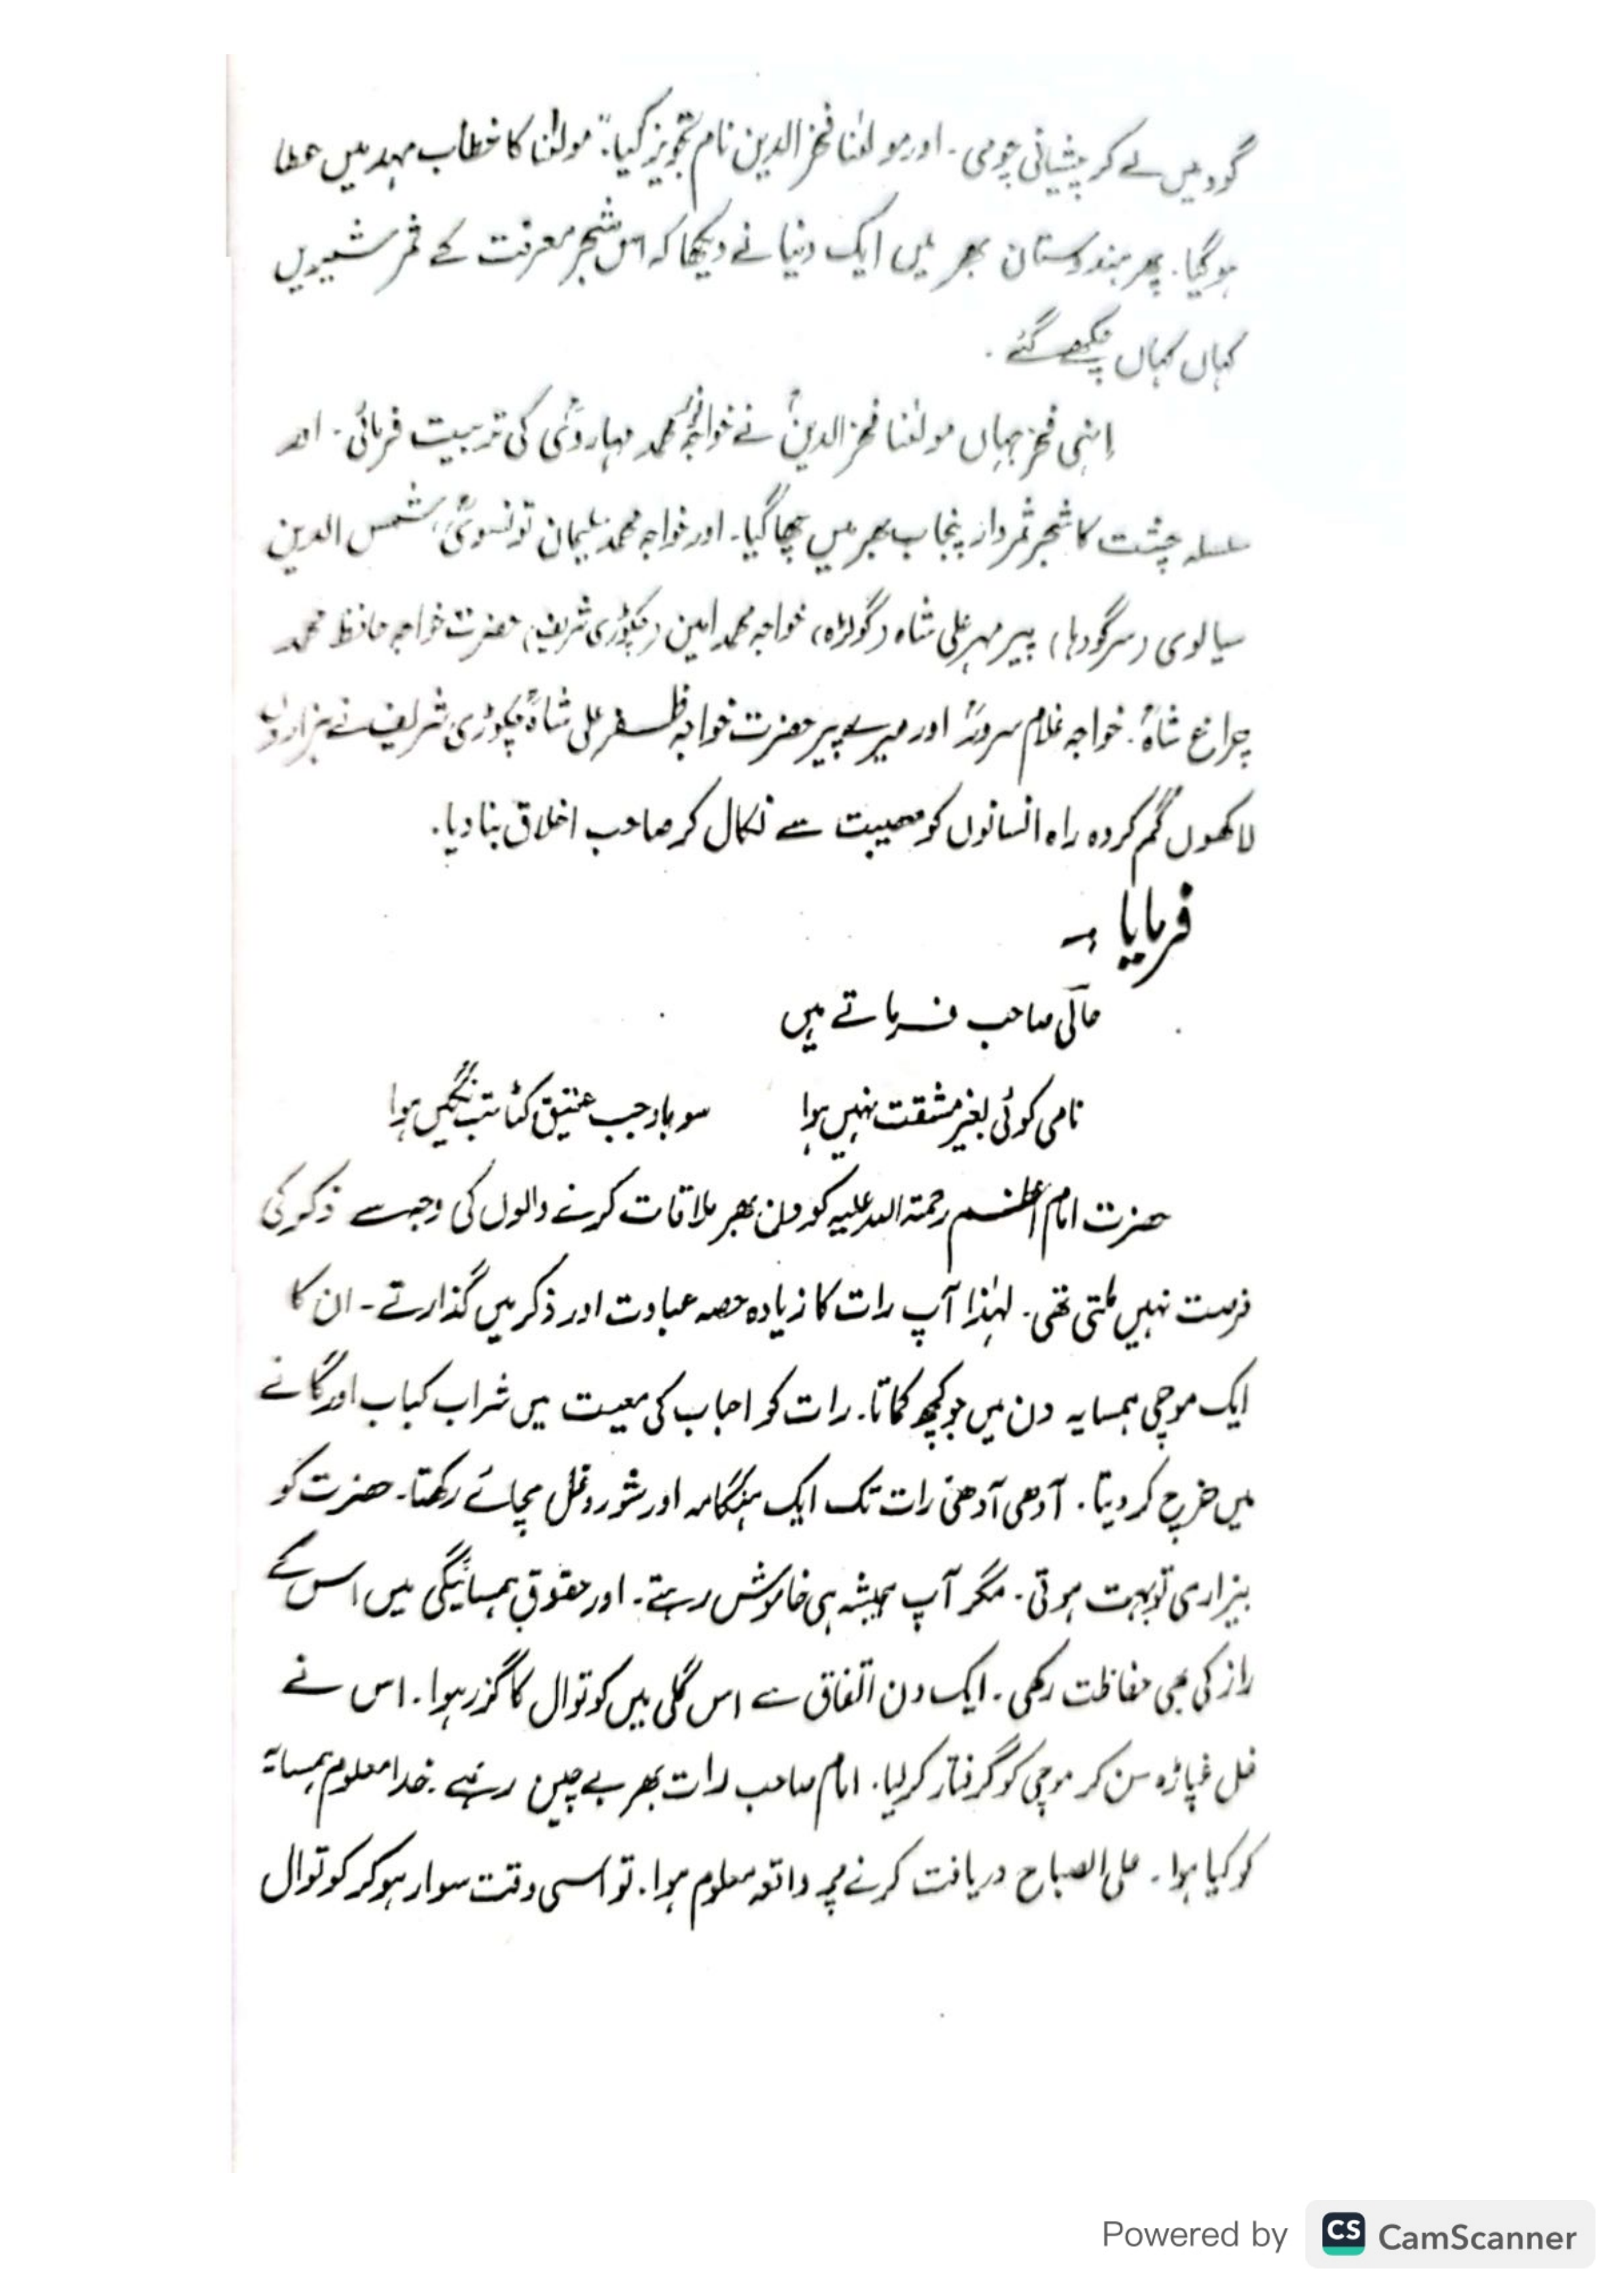 گود میں لے کر پیشانی چومی۔ اور مولٰنا فخر الدین نام تجویز کیا۔" مولٰنا کا خطاب مہد میں عطا
ہوگیا۔ پھر ہندوستان بھر میں ایک دنیا نے دیکھا کہ اس شجر معرفت کے ثمر شیریں
کہاں کہاں چکھے گئے۔
اِنہی فخر جہاں مولٰنا فخر الدینؒ نے خواجہ محمد مہارویؒ کی تربیت فرمائی۔ اور
سلسلہ چشت کا شجر ثمردار پنجاب بھر میں چھا گیا۔ اور خواجہ محمد سلیمان تونسویؒ، شمس الدین
سیالوی (سرگودہا) پیر مہر علی شاہ (گولڑہ) خواجہ محمد امین (چکوڑی شریف) حضرت خواجہ حافظ محمد
چراغ شاہؒ۔ خواجہ غلام سرورؒ اور میرے پیر حضرت خواجہ ظفر علی شاہؒ چکوڑی شریف نے ہزاروں
لاکھوں گم کردہ راہ انسانوں کو مصیبت سے نکال کر صاحب اخلاق بنا دیا۔
فرمایا :-
حالی صاحب فرماتے ہیں
نامی کوئی بغیر مشقت نہیں ہوا سو بار جب عتیق کٹا تب نگیں ہوا
حضرت امام اعظم رحمتہ اللہ علیہ کو دن بھر ملاقات کرنے والوں کی وجہ سے ذکر کی
فرصت نہیں ملتی تھی۔ لہٰذا آپ رات کا زیادہ حصہ عبادت اور ذکر میں گذارتے۔ ان کا
ایک موچی ہمسایہ دن میں جو کچھ کماتا۔ رات کو احباب کی معیت میں شراب کباب اور گانے
میں خرچ کر دیتا۔ آدھی آدھی رات تک ایک ہنگامہ اور شور و غل مچائے رکھتا۔ حضرت کو
بیزاری تو بہت ہوتی۔ مگر آپ ہمیشہ ہی خاموش رہتے۔ اور حقوقِ ہمسائیگی میں اس کے
راز کی بھی حفاظت رکھی۔ ایک دن اتفاق سے اس گلی میں کوتوال کا گزر ہوا۔ اس نے
غل غپاڑہ سن کر موچی کو گرفتار کر لیا۔ امام صاحب رات بھر بے چین رہے۔ خدا معلوم ہمسایہ
کو کیا ہوا۔ علی الصباح دریافت کرنے پر واقعہ معلوم ہوا۔ تو اسی وقت سوار ہو کر کوتوال
Powered by CS CamScanner